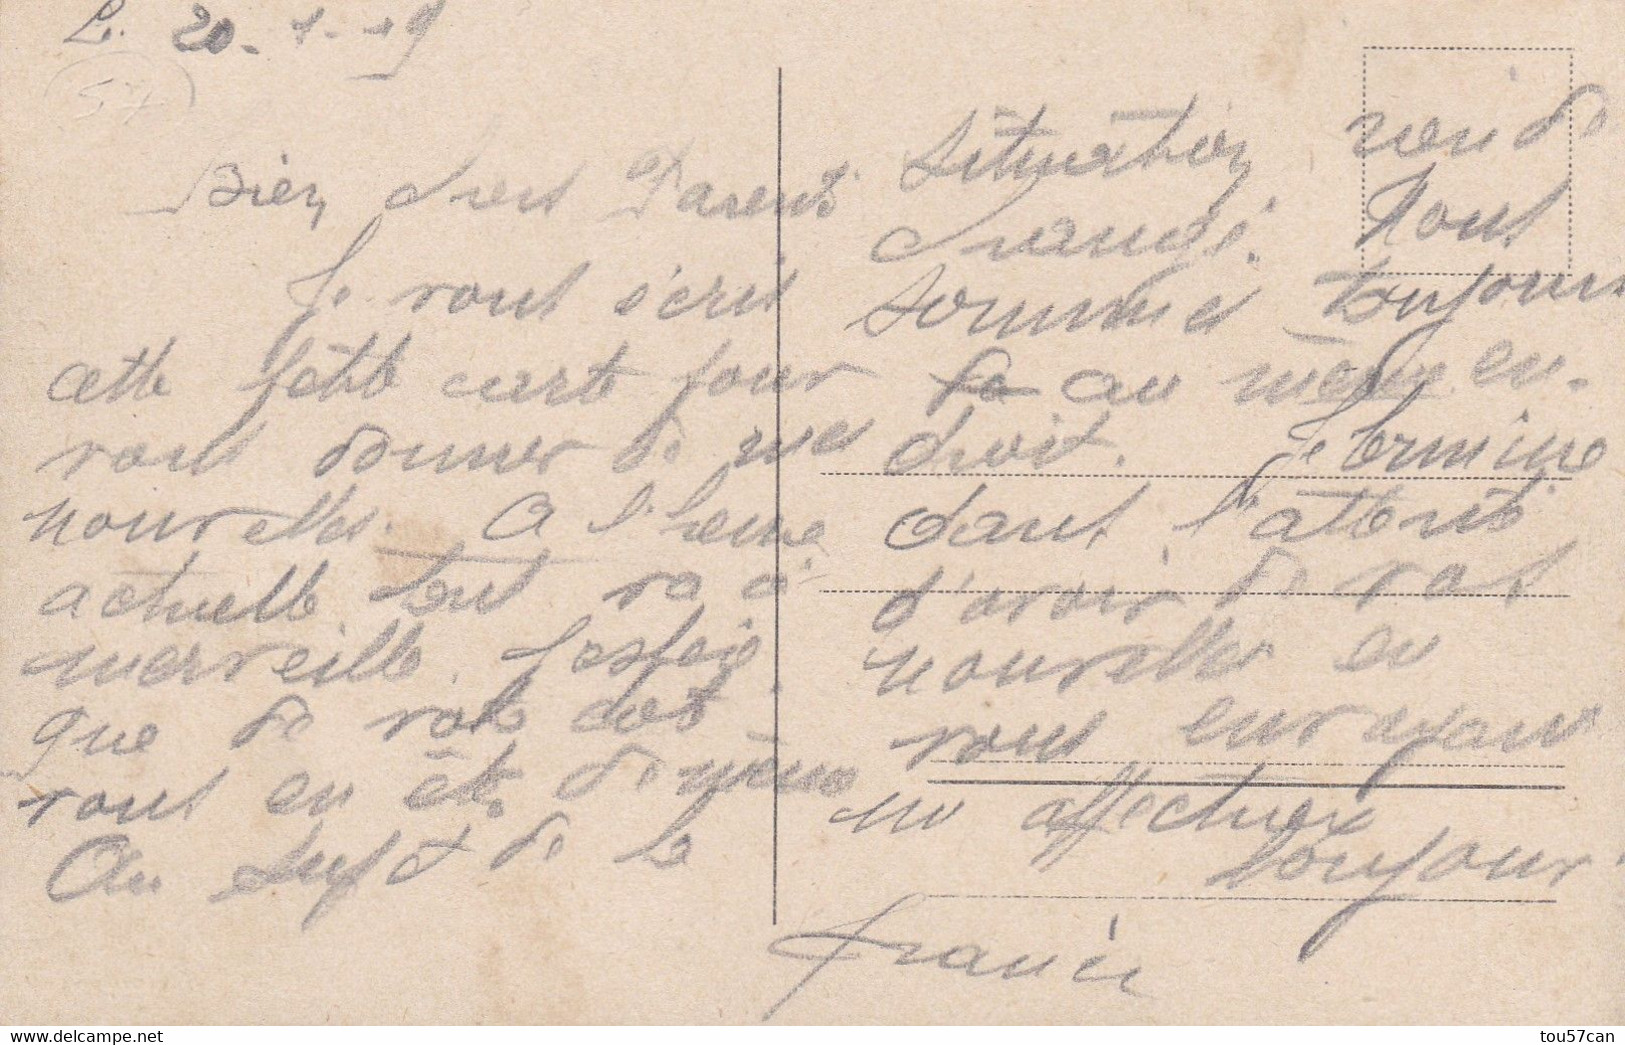 L. 20-1-19
57
Bien chers Parents
Je vous s'cris
cette petite carte pour
vous donner de mes
nouvelles. A l'heure
actuelle tout va à
merveille. J'espère
que de votre coté
vous en ête de même
Au sujet de la
situation rien de
changé. Nous
sommes toujours
au même en-
droit. Je termine
dans l'attente
d'avoir de vos
nouvelles en
vous envoyant
affectueux
toujours
Francis
tou57can